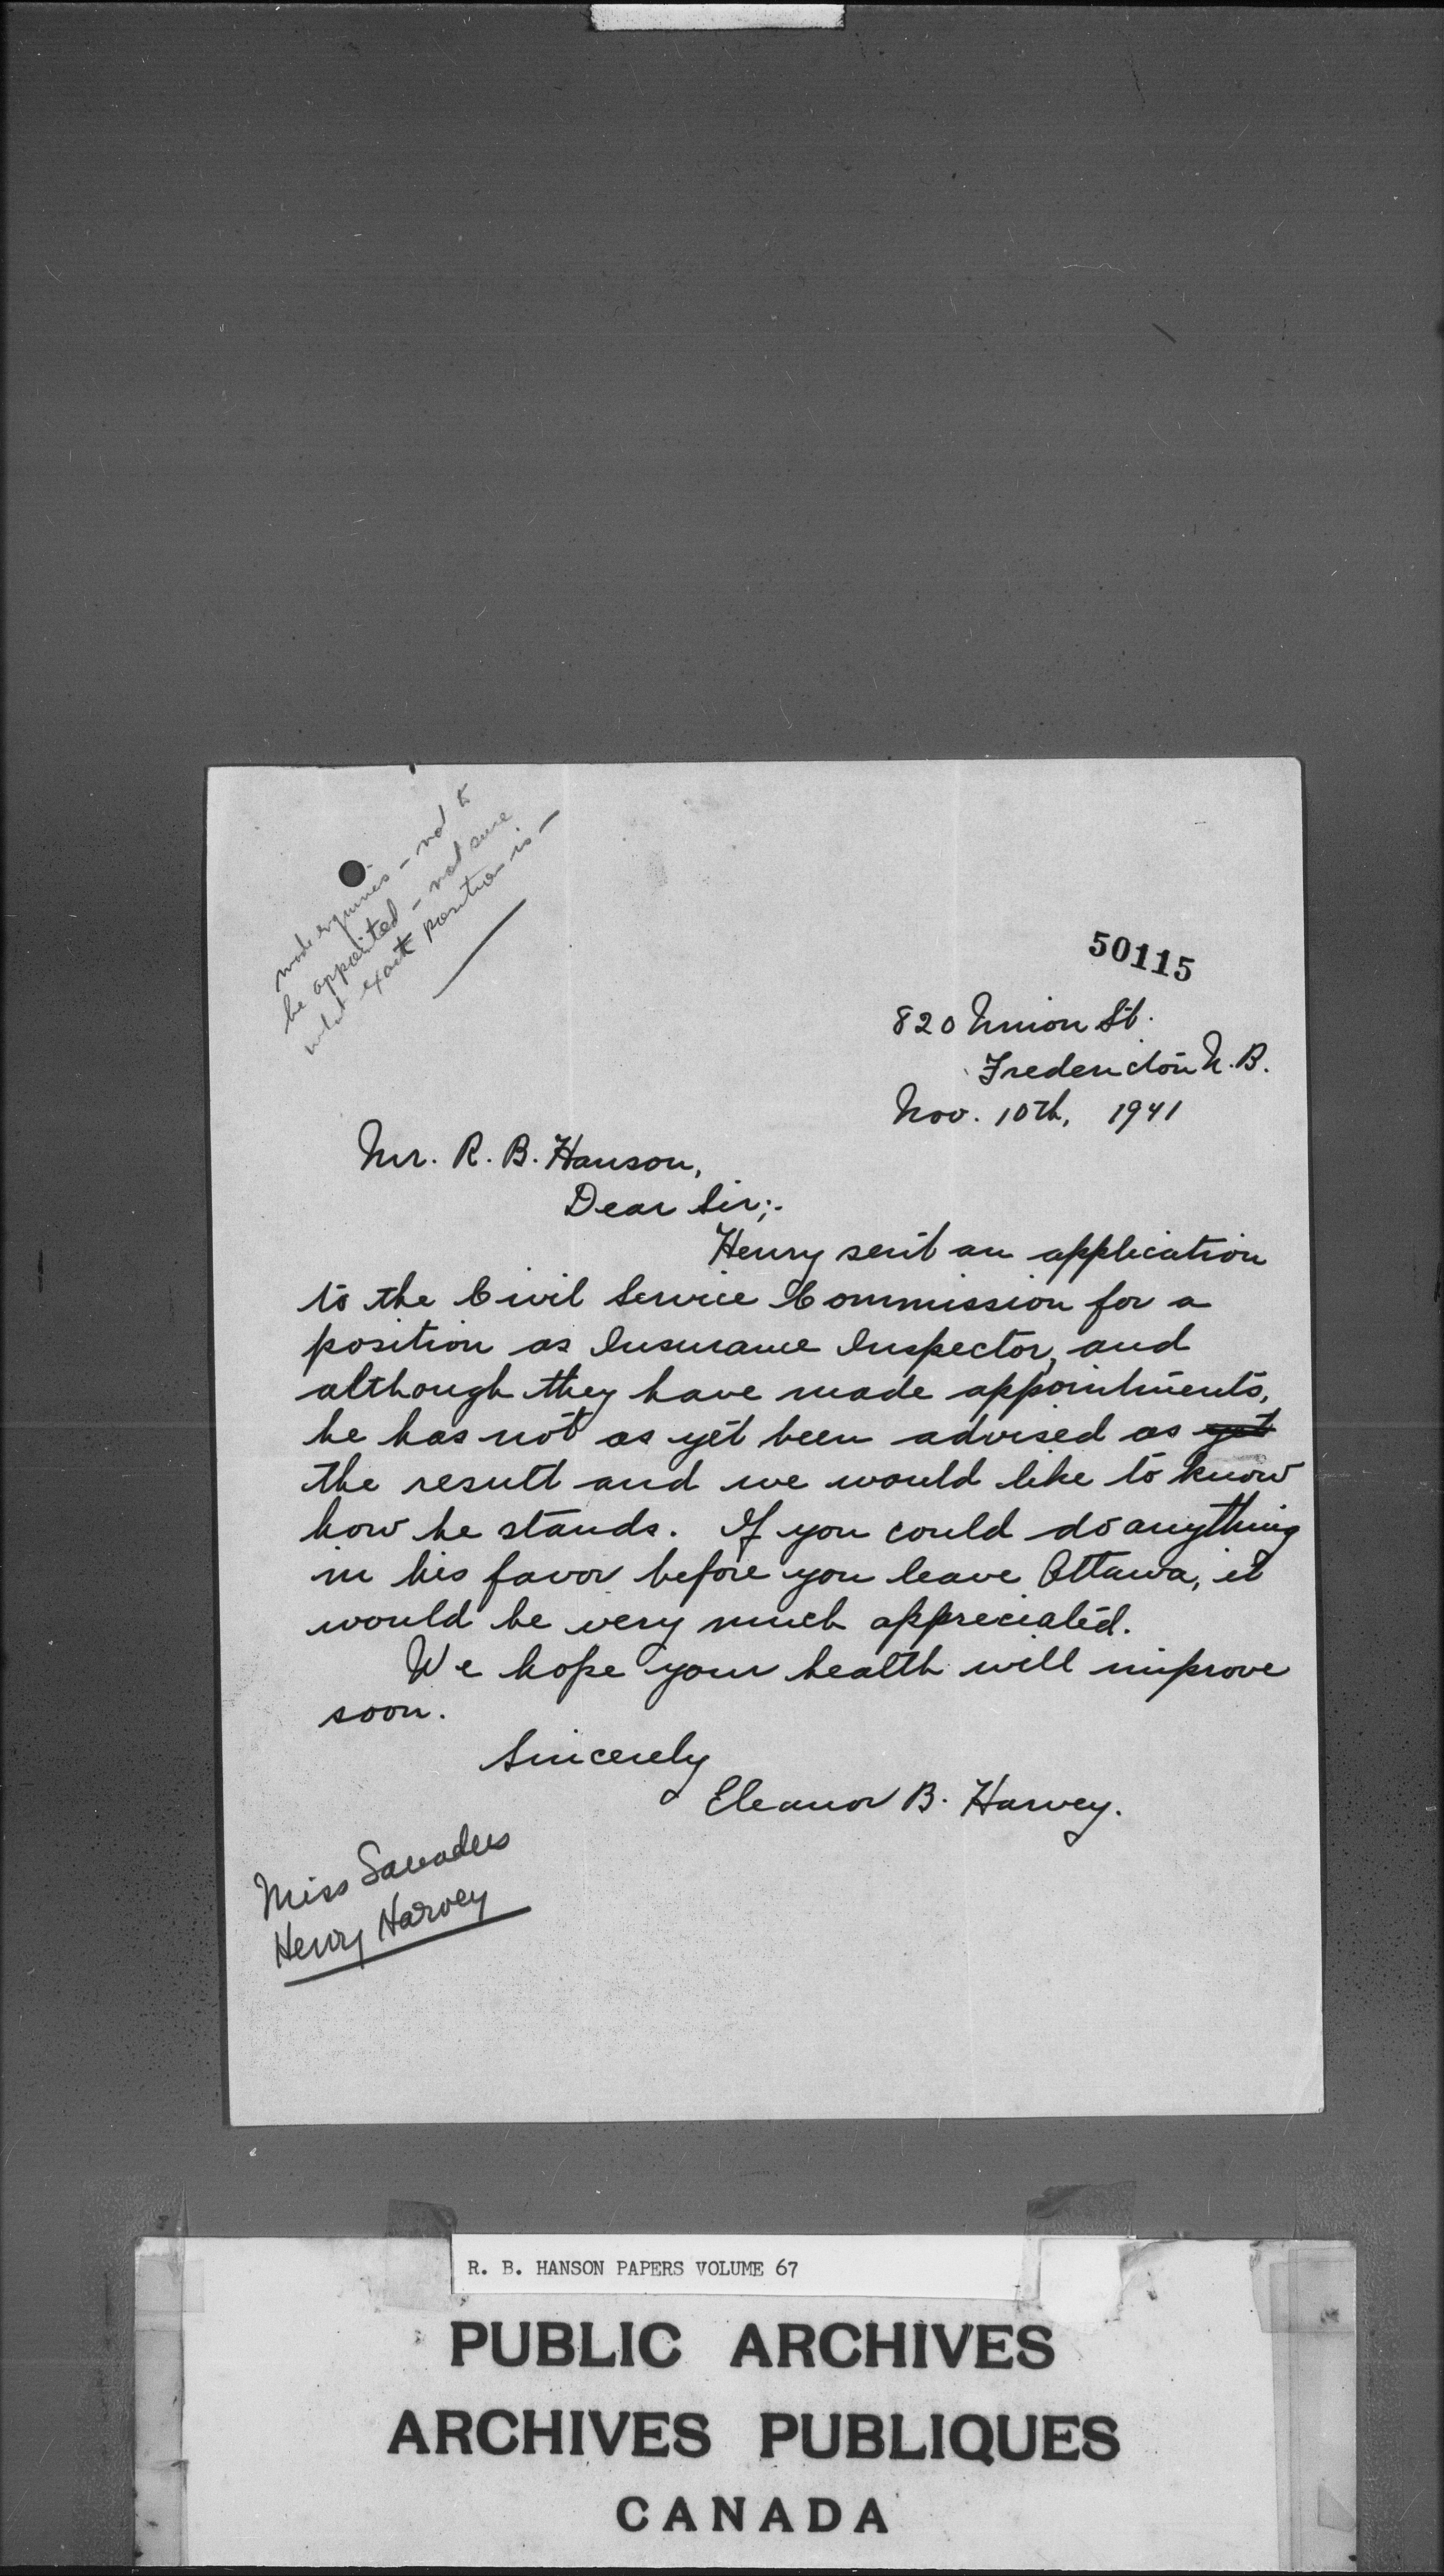 made enquiries - not to
be appointed - not sure
what exact position is -
50115
820 Union St.
Fredericton N.B.
Nov. 10th, 1941
Mr. R. B. Hanson,
Dear Sir;-
Henry sent an application
to the Civil Service Commission for a
position as Insurance Inspector, and
although they have made appointments,
he has not as yet been advised as yet
the result and we would like to know
how he stands. If you could do anything
in his favor before you leave Ottawa, it
would be very much appreciated.
We hope your health will improve
soon.
Sincerely
Eleanor B. Harvey.
Miss Saunders
Henry Harvey
R. B. HANSON PAPERS VOLUME 67
PUBLIC ARCHIVES
ARCHIVES PUBLIQUES
CANADA